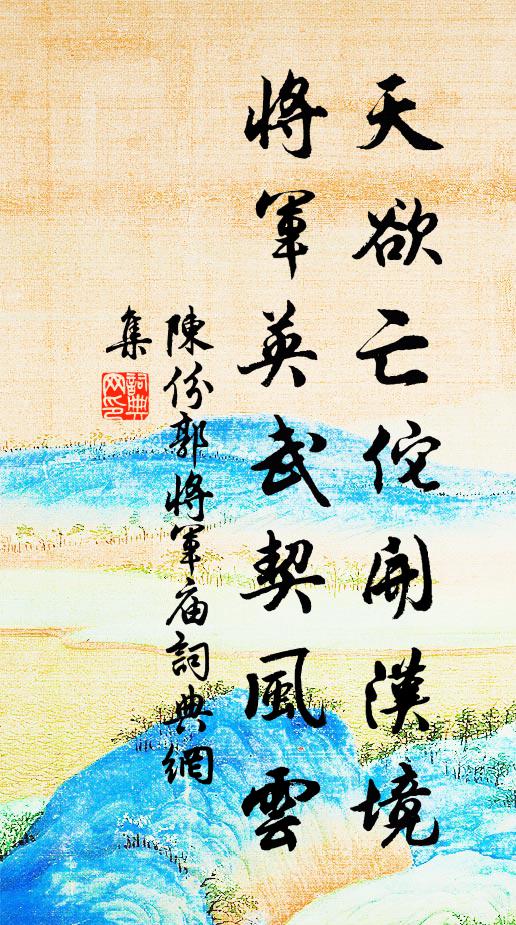 天欲亡佗開漢境
將軍英武契風雲
陳份郭將軍庙詞典網
集
詞典
网印